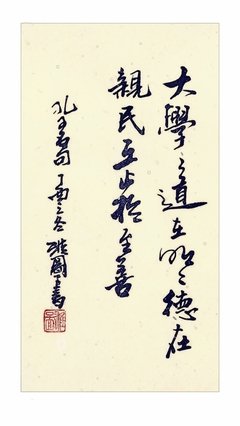 大學之道在明明德在
親民在止於至善
孔子句 丁酉之冬 維國書